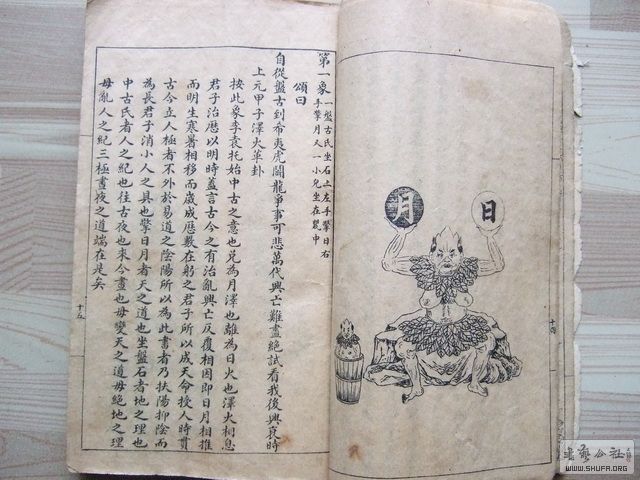 第一象
一盤古氏坐石上左手擎日右
手擎月又一小兒坐在甕中
頌曰
自從盤古到希夷虎鬭龍爭事可悲萬代興亡難盡絕試看我後興衰時
上元甲子澤火革卦
按此象李袁托始中古之意也兌為月澤也離為日火也澤火相息
君子治歷以明時蓋言古今之有治亂興亡反覆相因即日月相推
而明生寒暑相移而歲成歷數在躬之君子所以成天命授人時貫
古今立人極者不外於易道之陰陽所以為此書者乃扶陽抑陰而
為長君子消小人之具也擎日月者天之道也坐盤石者地之理也
中古氏者人之紀也往古夜也來今晝也毋變天之道毋絕地之理
毋亂人之紀三極晝夜之道端在是矣
十五
月
日
十四
WWW.SHUFA.ORG